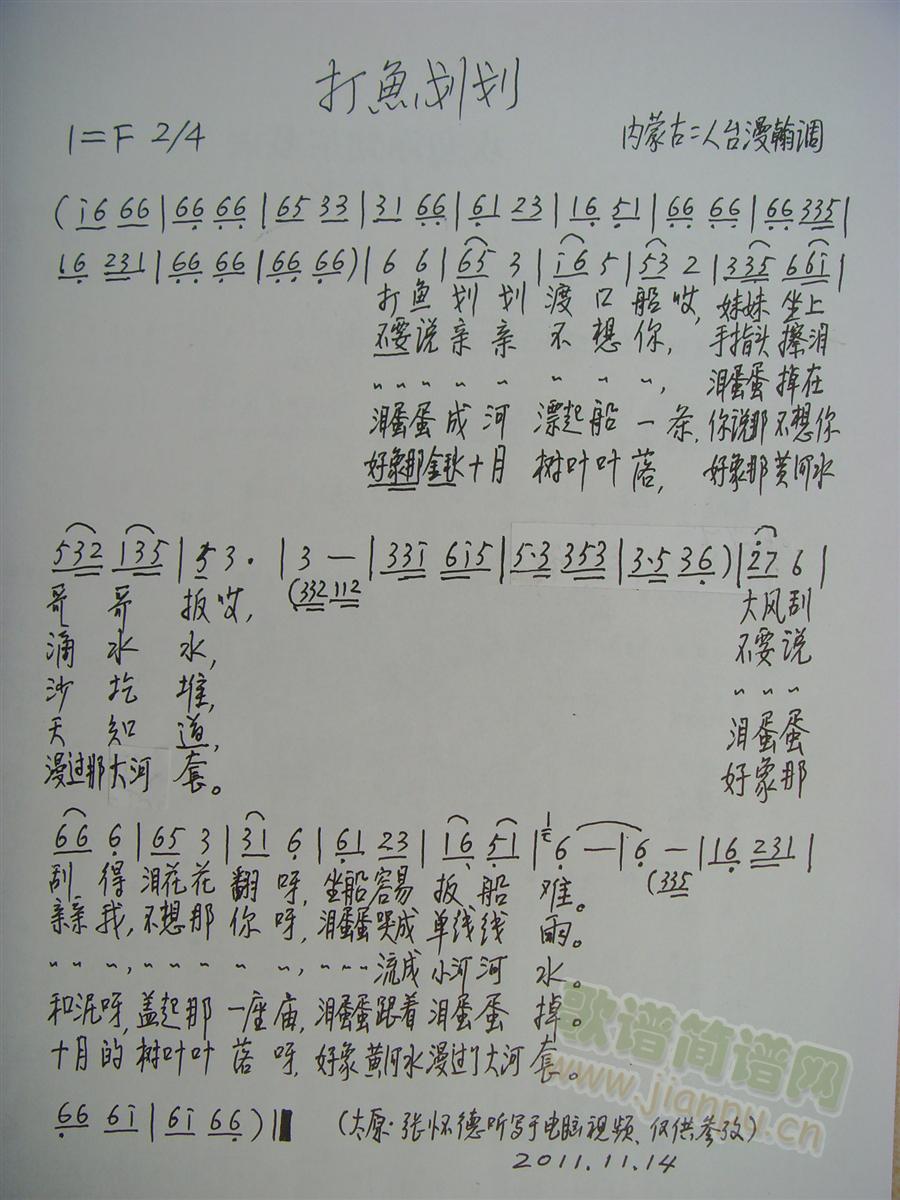 打魚划划
1=F 2/4
内蒙古二人台漫翰调
(i6 66|66 66|65 33|31 66|61 23|16 51|66 66|66 335|
16 231|66 66|66 66)|6 6|65 3|i6 5|53 2|335 66i|
打鱼划划渡口船哎,妹妹坐上
不要说亲亲不想你,手指头擦泪
〃〃〃〃〃〃〃,泪蛋蛋掉在
泪蛋蛋成河漂起船一条,你说那不想你
好象那金秋十月树叶叶落,好象那黄河水
532 135|53·|3—|33i 6i5|5·3 353|3·5 36)|27 6|
(332 112
哥哥扳哎,大风刮
涌水水,不要说
沙圪堆,〃〃〃
天知道,泪蛋蛋
漫过那大河套。好象那
66 6|65 3|31 6|61 23|16 51|6—|6—|16 231|
(335
刮得泪花花翻呀,坐船容易扳船难。
亲亲我,不想那你呀,泪蛋蛋哭成单线线雨。
〃〃〃,〃〃〃〃〃,〃〃〃流成小河河水。
和泥呀,盖起那一座庙,泪蛋蛋跟着泪蛋蛋掉。
十月的树叶叶落呀,好象黄河水漫过了大河套。
66 6i|6i 66)‖
(太原·张怀德听写于电脑视频、仅供参考)
2011.11.14
歌谱简谱网
www.jianpu.cn